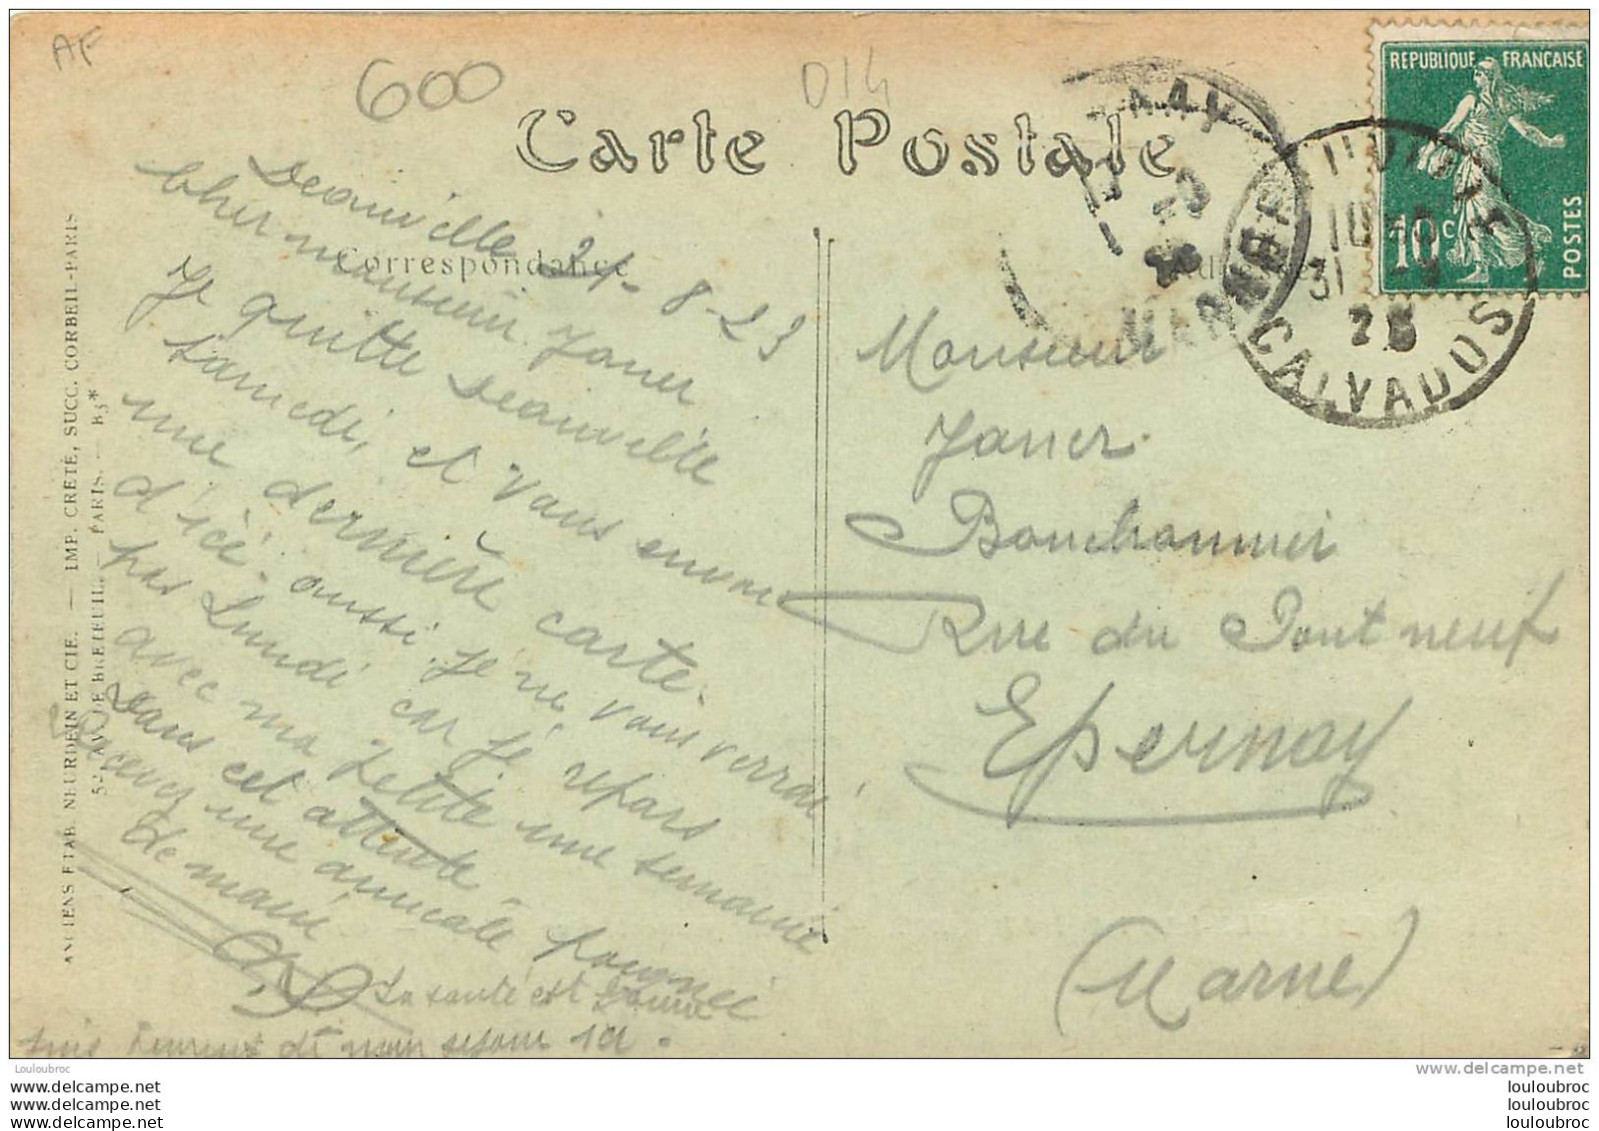 AF
600
D14
Carte Postale
Correspondance
Deauville 31-8-23
Cher monsieur Janer
Je quitte Deauville
samedi, et vous envoie
une dernière carte
d'ici. aussi je ne vous verrai
pas Lundi car je repars
avec ma petite une semaine
Dans cet attente
Recevez une amicale poignée
de main
La santé est bonne
suis heureux de mon sejour ici.
Monsieur
Janer
Bouchonnier
Rue du Pont neuf
Epernay
(Marne)
REPUBLIQUE FRANÇAISE
10c
POSTES
MARNE
31
CALVADOS
ANCIENS ETAB. NEURDEIN ET CIE. — IMP. CRETÉ, SUCC. CORBEIL-PARIS
52 AV. DE BRETEUIL. — PARIS. — B3*
Louloubroc
www.delcampe.net
www.delcampe.net
www.delcampe.net
www.delcampe.net
louloubroc
louloubroc
louloubroc